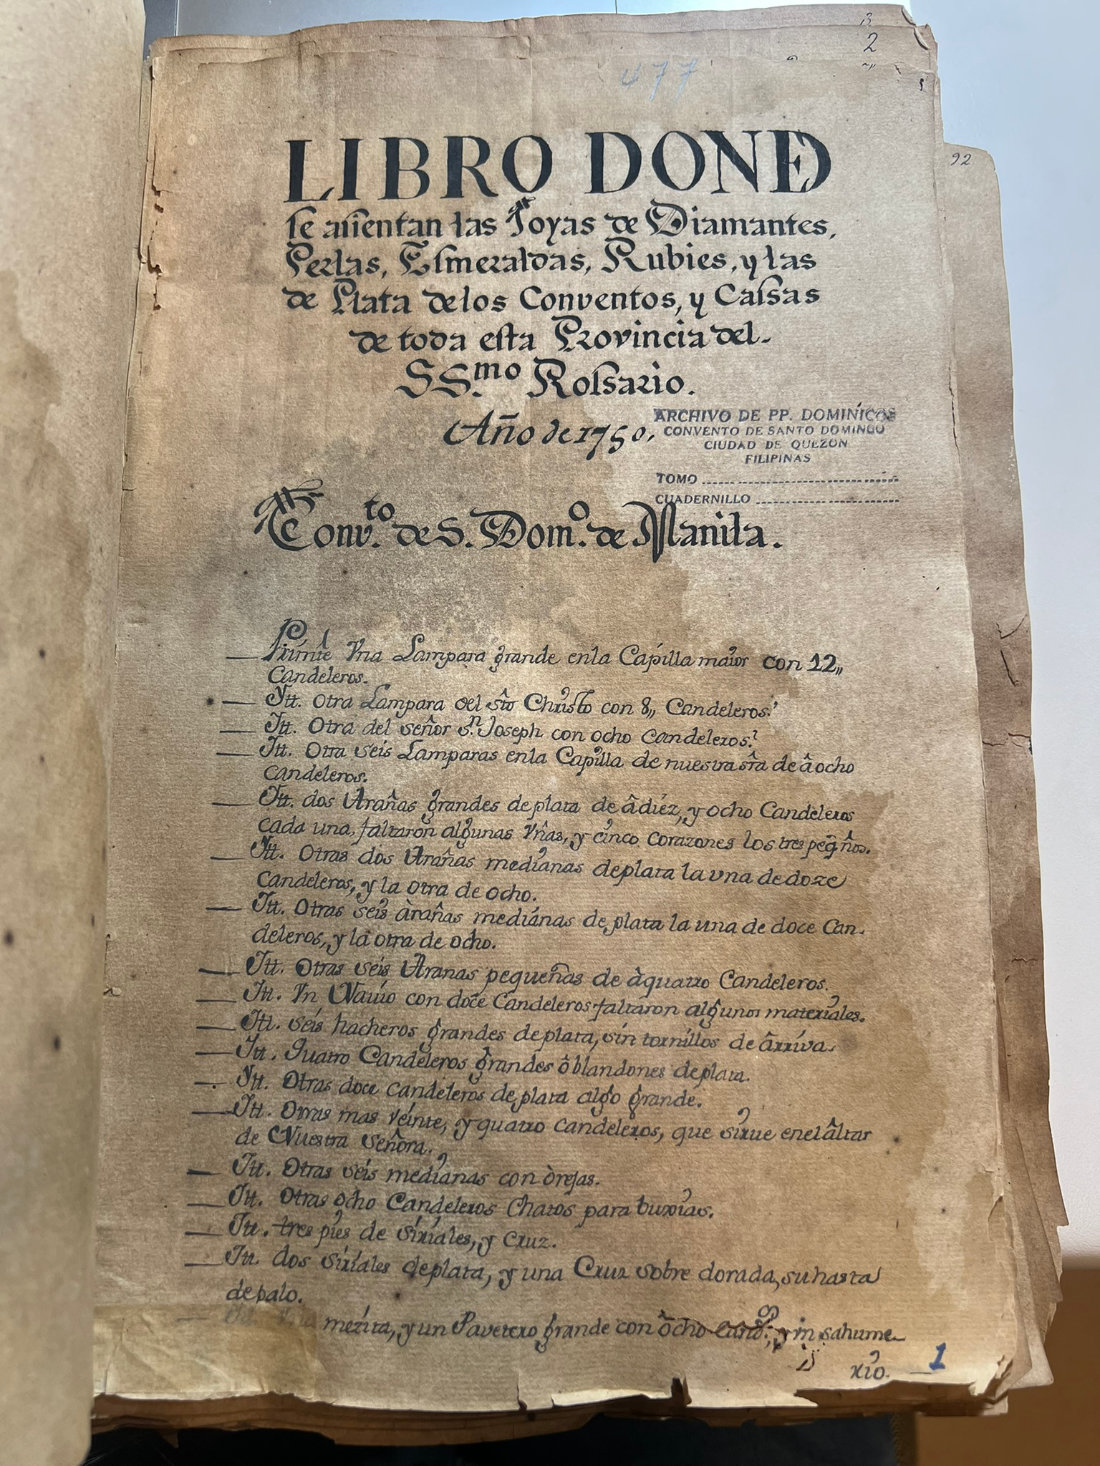 3
2
477
92
LIBRO DONDE
se assientan las Joyas de Diamantes,
Perlas, Esmeraldas, Rubies, y las
de Plata de los Conventos, y Cassas
de toda esta Provincia del
SS.mo Rossario.
Año de 1750.
ARCHIVO DE PP. DOMINICOS
CONVENTO DE SANTO DOMINGO
CIUDAD DE QUEZON
FILIPINAS
TOMO
CUADERNILLO
Conv.to de S. Dom.o de Manila.
Primte Vna Lampara grande enla Capilla maior con 12,,
Candeleros.
Ytt. Otra Lampara del sto Christo con 8,, Candeleros.
Itt. Otra del señor sn. Joseph con ocho candeleros.
Itt. Otra seis Lamparas enla Capilla de nuestra sra de â ocho
candeleros.
Itt. dos Arañas grandes de plata de â diéz,, y ocho Candeleros
cada una, faltaron algunas Vñas, y cinco corazones los tres peqños.
Ytt. Otras dos Arañas medianas de plata la vna de doze
candeleros, y la otra de ocho.
Itt. Otras seis àrañas medianas de plata la una de doce Can-
deleros, y la otra de ocho.
Itt. Otras seis Aranas pequeñas de à quatro Candeleros.
Itt. Vn Navio con doce Candeleros faltaron algunos materiales.
Itt. seis hacheros grandes de plata, sin tornillos de ârriva.
Itt. Quatro Candeleros grandes ô blandones de plata.
Ytt. Otras doce candeleros de plata algo grande.
Itt. Otras mas veinte, y quatro candeleros, que sirue enel âltar
de Nuestra Señora.
Itt. Otras seis medianas con òrejas.
Itt. Otras ocho Candeleros Chatos para buxias.
Itt. tres pies de siriales, y Cruz.
Itt. dos siriales de plata, y una Cruz sobre dorada, su hasta
de palo.
mezita, y un Pavetero grande con ôcho y in sahume-
rio.
1